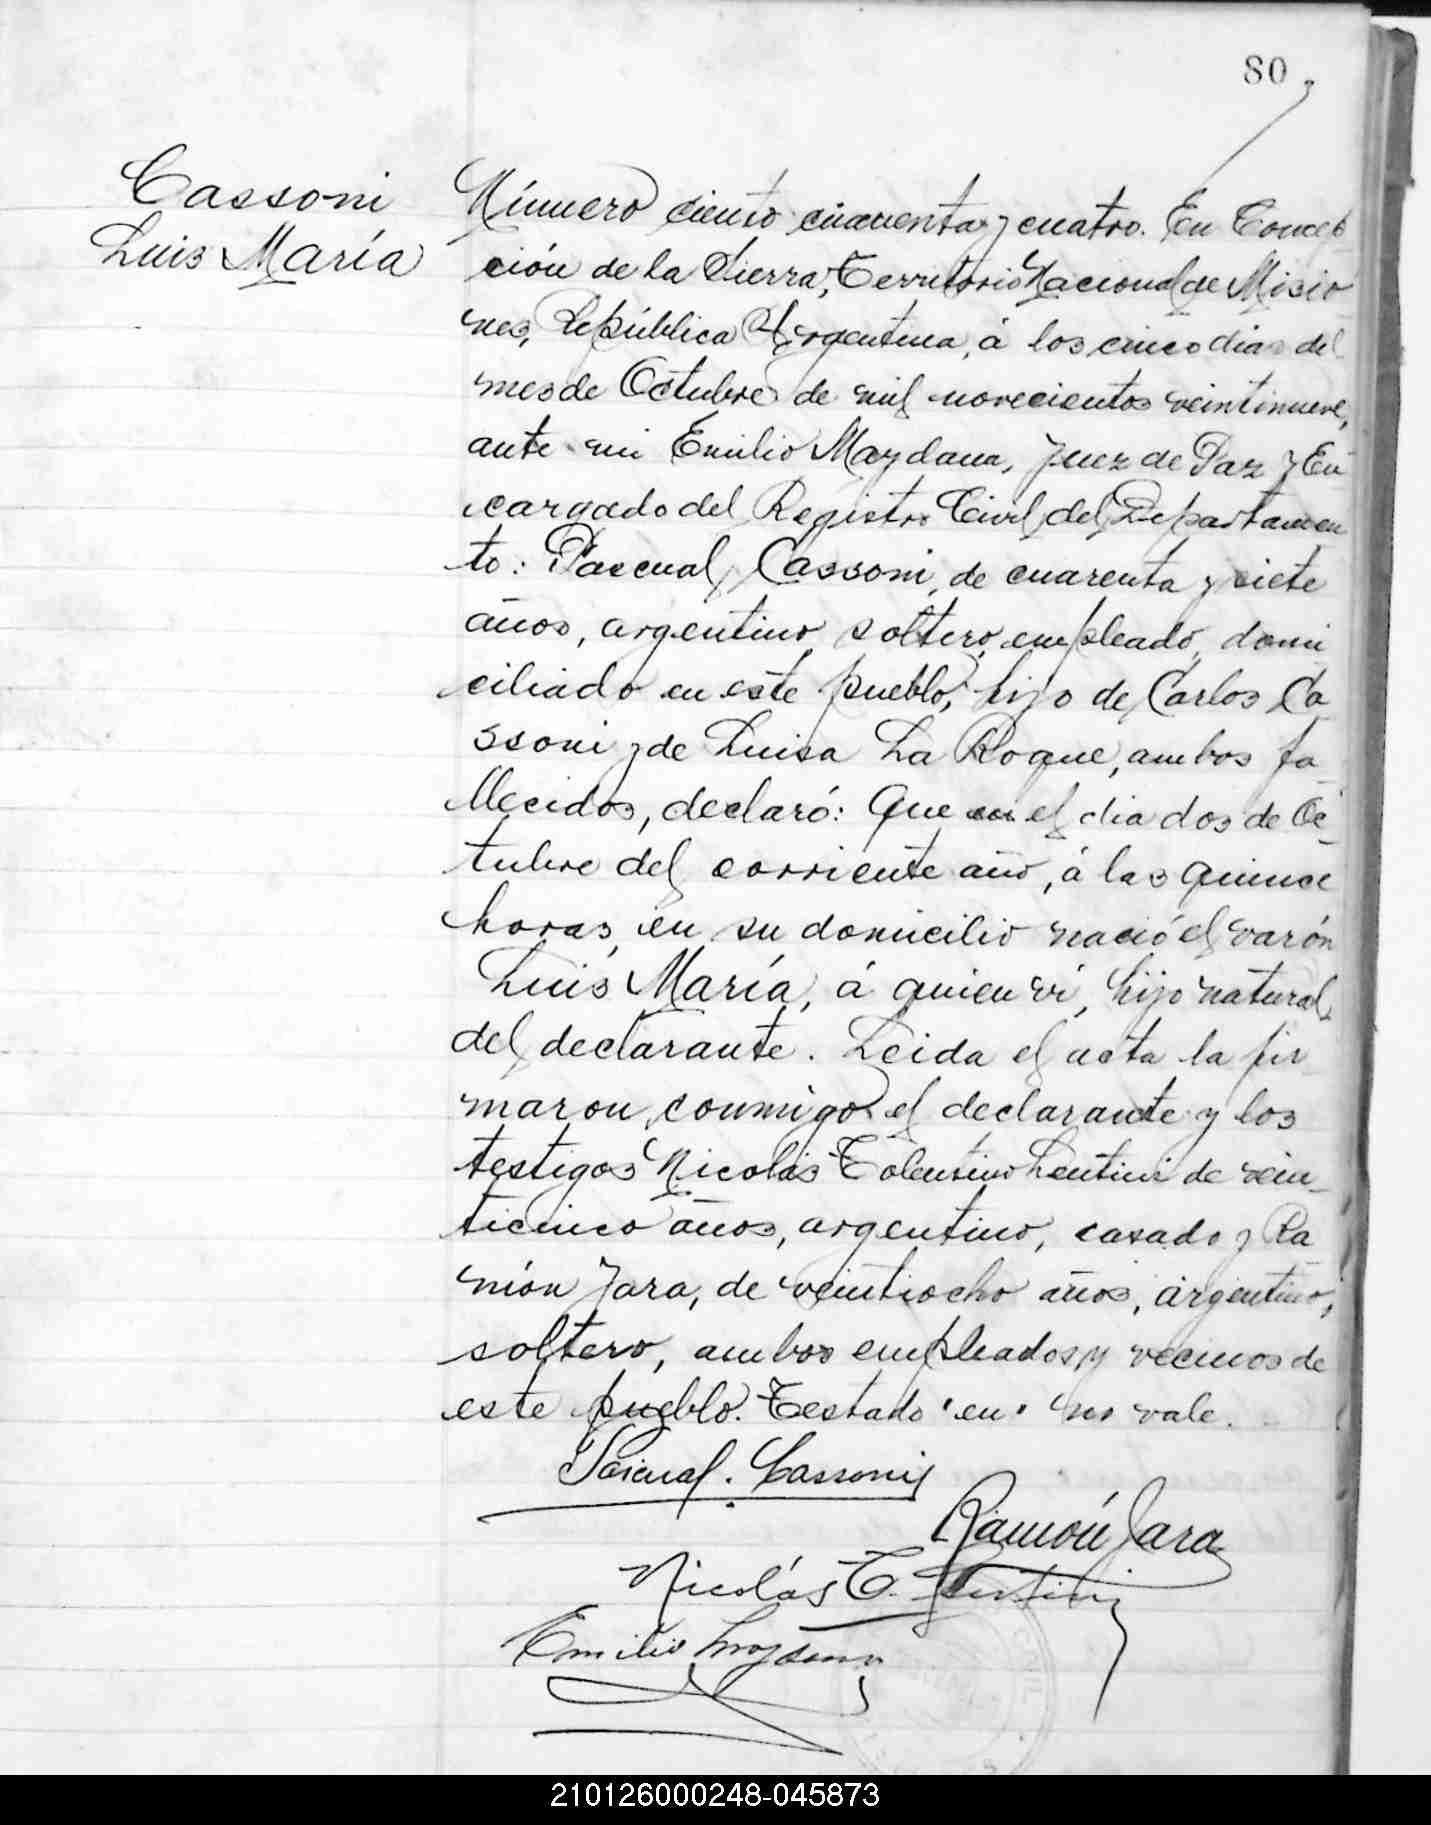 80
Cassoni
Luis María
Número ciento cuarenta y cuatro. En Concep
ción de la Sierra, Territorio Nacional de Misio
nes, República Argentina, á los cinco dias del
mes de Octubre de mil novecientos veintinueve,
ante mi Emilio Maydana, Juez de Paz y En
cargado del Registro Civil del Departamen
to: Pascual Cassoni, de cuarenta y siete
años, argentino, soltero, empleado, domi
ciliado en este pueblo, hijo de Carlos Ca
ssoni y de Luisa La Roque, ambos fa
llecidos, declaró: Que en el dia dos de Oc
tubre del corriente año, á las quince
horas, en su domicilio nació el varón
Luis María, á quien ví, hijo natural
del declarante. Leida el acta la fir
maron conmigo el declarante y los
testigos Nicolás Tolentino Lentini de vein
ticinco años, argentino, casado y Ra
món Jara, de veintiocho años, argentino,
soltero, ambos empleados y vecinos de
este pueblo. Testado "en" no vale.
Pascual. Cassoni
Ramón Jara
Nicolás T. Lentini
Emilio Maydana
210126000248-045873